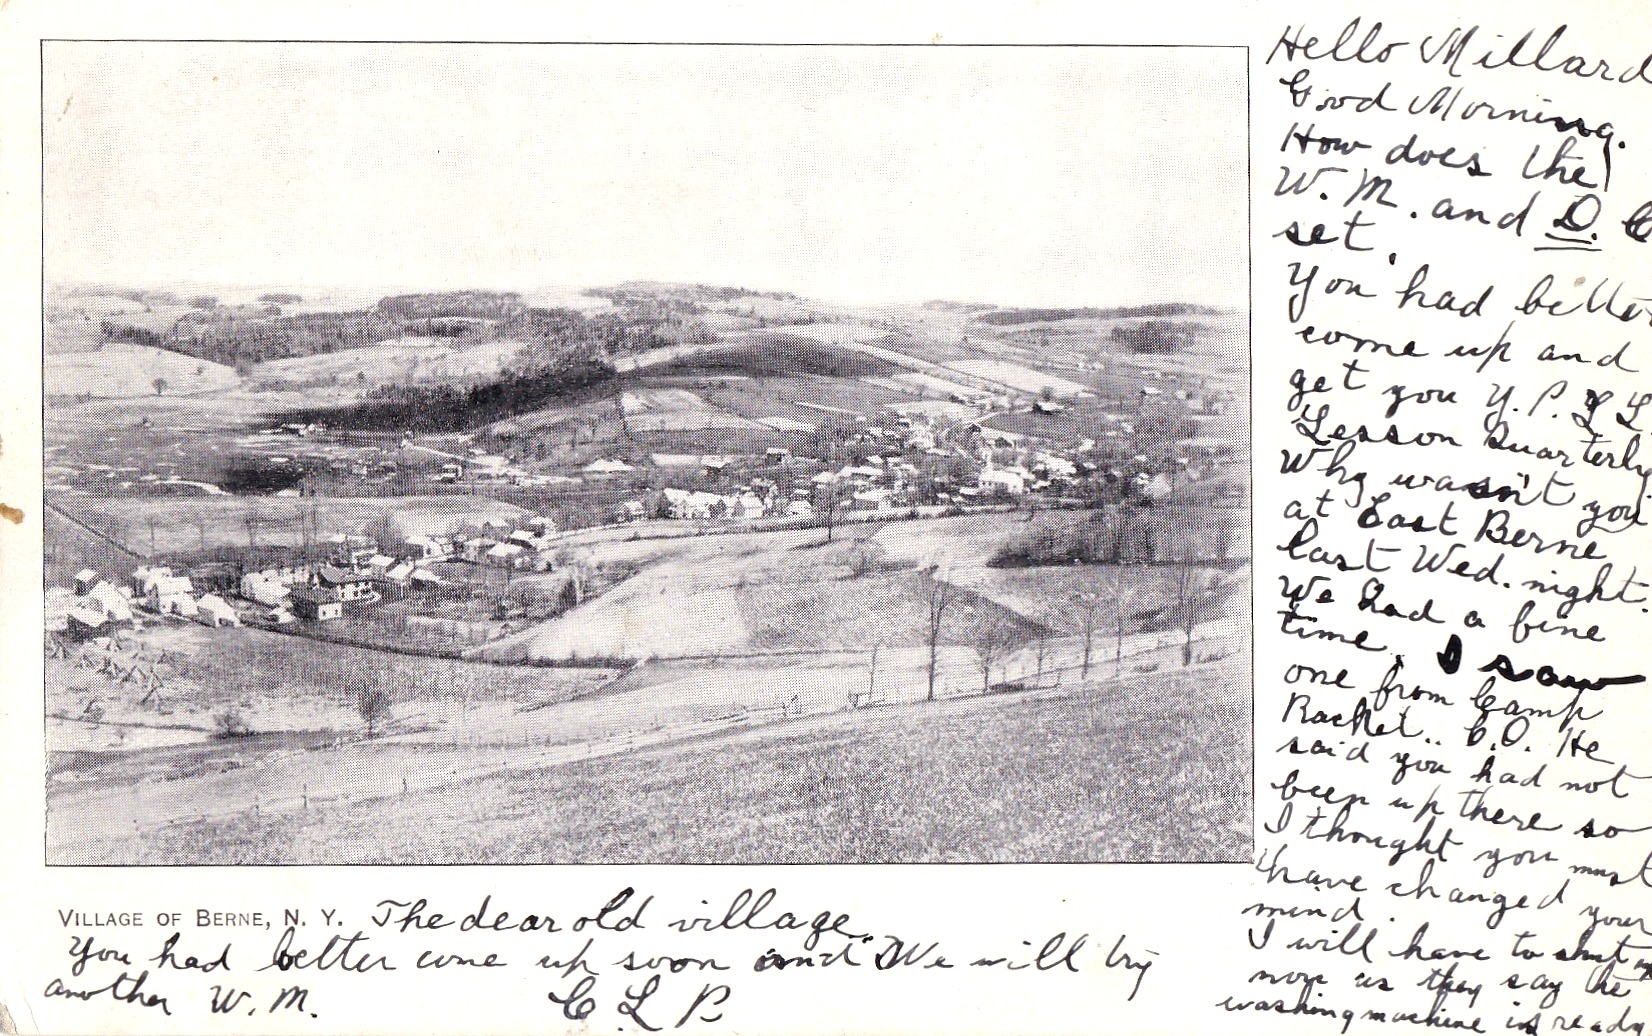 Hello Millard
Good Morning.
How does the
W. M. and D. C
set.
You had better
come up and
get you Y. P. L L.
Lesson Quarterly.
Why wasn't you
at East Berne
last Wed. night.
We had a fine
time. I saw
one from Camp
Racket.. C.O. He
said you had not
been up there so
I thought you must
have changed your
mind.
I will have to shut
now as they say the
washing machine is ready
VILLAGE OF BERNE, N. Y. The dear old village
You had better come up soon and We will try
another W. M. C L P